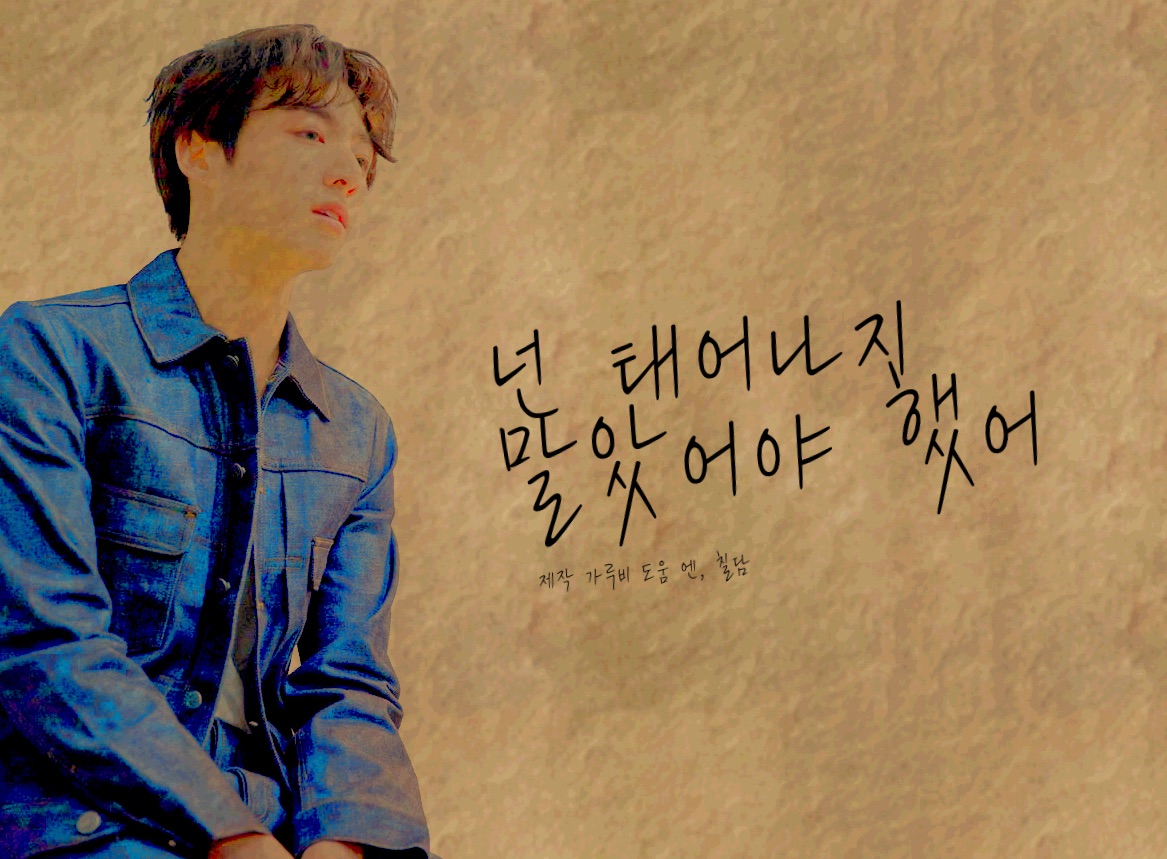 넌 태어나질
말았어야 했어
제작 가루비 도움 엔, 칠담